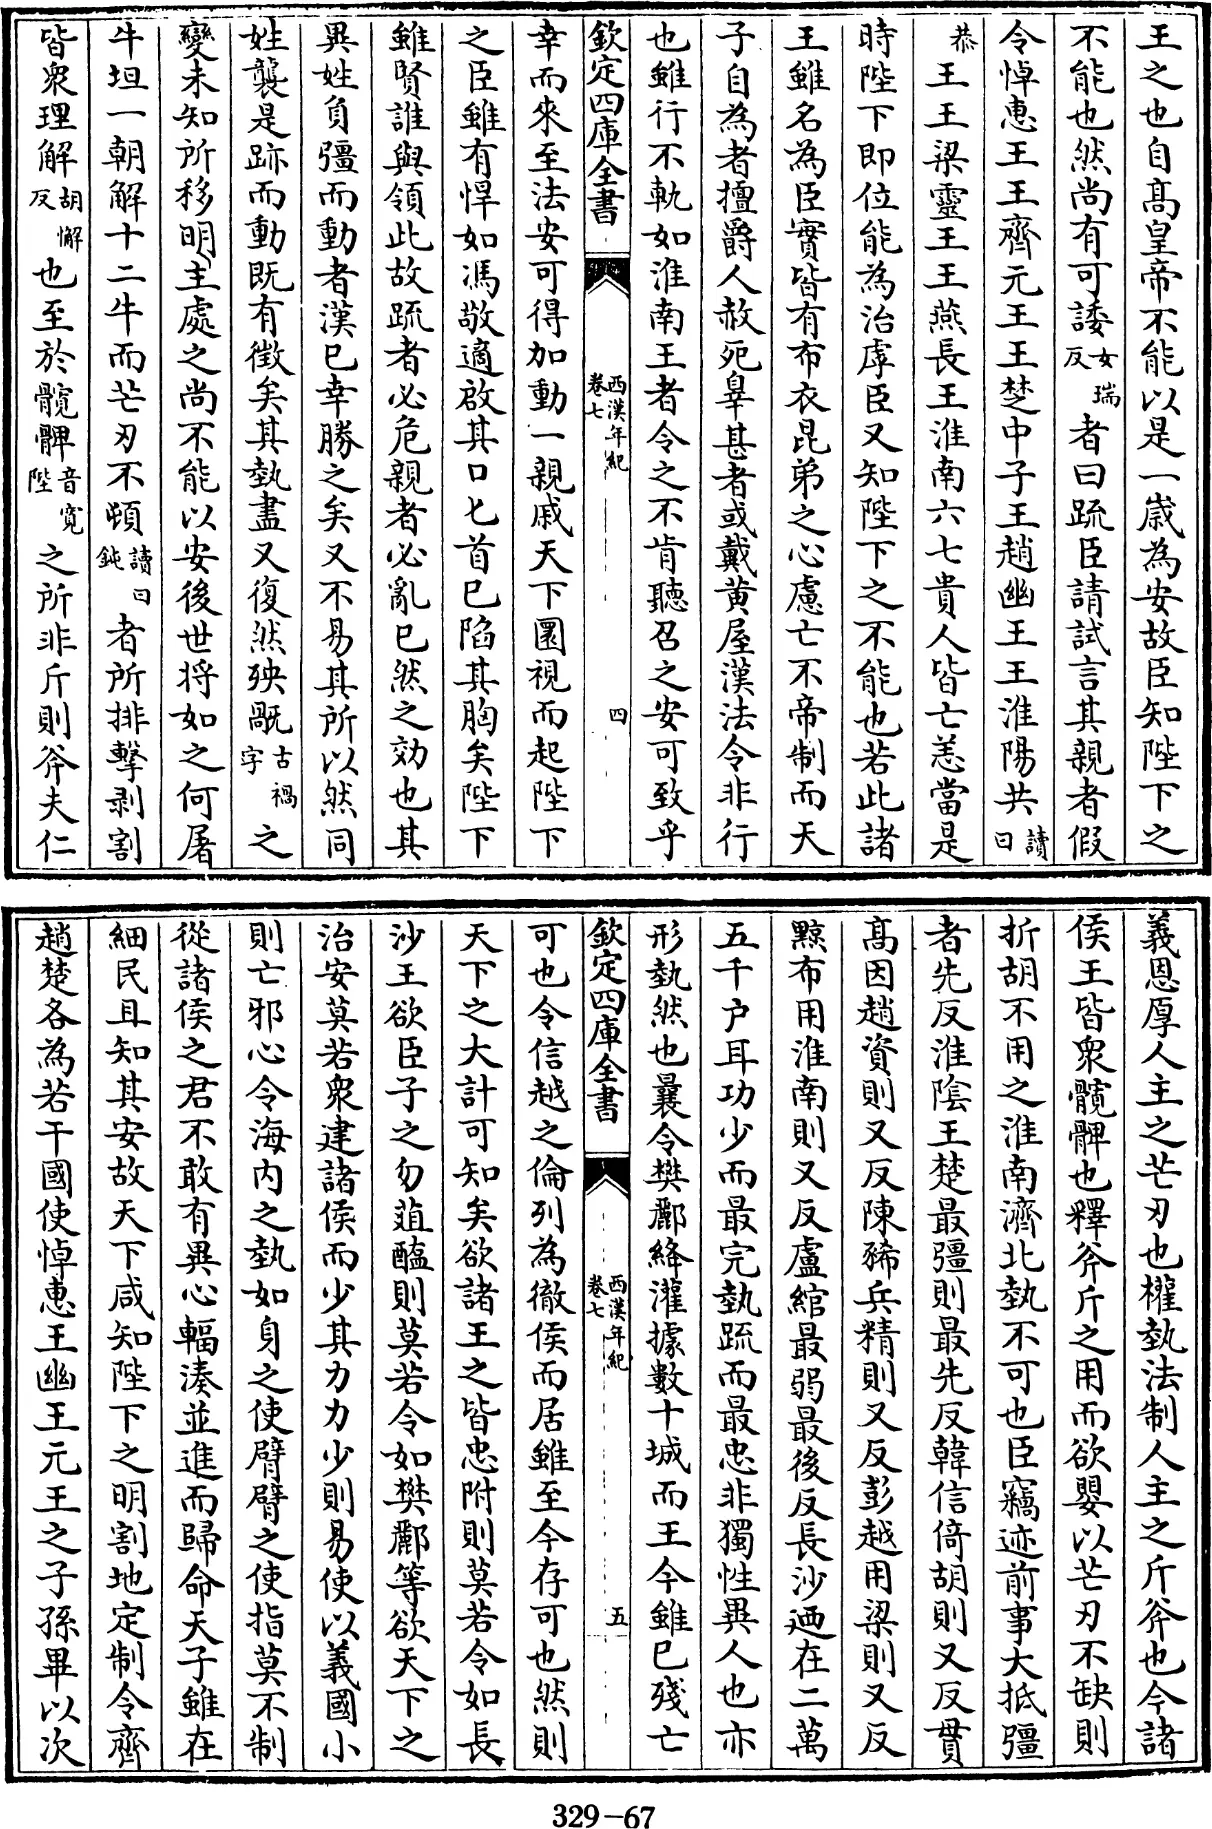 王之也自髙皇帝不能以是一歳為安故臣知陛下之
不能也然尚有可諉女瑞反者曰疏臣請試言其親者假
令悼惠王王齊元王王楚中子王趙幽王王淮陽共讀曰
恭王王梁靈王王燕長王淮南六七貴人皆亡恙當是
時陛下即位能為治虖臣又知陛下之不能也若此諸
王雖名為臣實皆有布衣昆弟之心慮亡不帝制而天
子自為者擅爵人赦死辠甚者或戴黄屋漢法令非行
也雖行不軌如淮南王者令之不肯聽召之安可致乎
欽定四庫全書 西漢年紀 卷七 四
幸而來至法安可得加動一親戚天下圜視而起陛下
之臣雖有悍如馮敬適啟其口匕首已陷其胸矣陛下
雖賢誰與領此故疏者必危親者必亂已然之效也其
異姓負彊而動者漢已幸勝之矣又不易其所以然同
姓襲是跡而動既有徴矣其埶盡又復然殃旤古禍字之
變未知所移明主處之尚不能以安後世将如之何屠
牛坦一朝解十二牛而芒刃不頓讀曰鈍者所排擊剥割
皆衆理解胡懈反也至於髖髀音寛陛之所非斤則斧夫仁
義恩厚人主之芒刃也權埶法制人主之斤斧也今諸
侯王皆衆髖髀也釋斧斤之用而欲嬰以芒刃不缺則
折胡不用之淮南濟北埶不可也臣竊迹前事大抵彊
者先反淮隂王楚最彊則最先反韓信倚胡則又反貫
髙因趙資則又反陳豨兵精則又反彭越用梁則又反
黥布用淮南則又反盧綰最弱最後反長沙廼在二萬
五千户耳功少而最完埶疏而最忠非獨性異人也亦
形埶然也曩令樊酈絳灌據數十城而王今雖已殘亡
欽定四庫全書 西漢年紀 卷七 五
可也令信越之倫列為徹侯而居雖至今存可也然則
天下之大計可知矣欲諸王之皆忠附則莫若令如長
沙王欲臣子之勿葅醢則莫若令如樊酈等欲天下之
治安莫若衆建諸侯而少其力力少則易使以義國小
則亡邪心令海内之埶如身之使臂臂之使指莫不制
從諸侯之君不敢有異心輻湊並進而歸命天子雖在
細民且知其安故天下咸知陛下之明割地定制令齊
趙楚各為若干國使悼惠王幽王元王之子孫畢以次
329-67